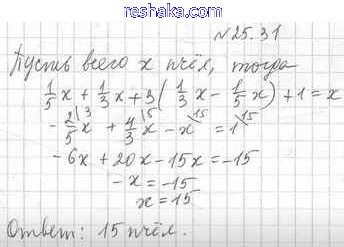 reshaka.com
№25.31
Пусть всего x пчёл, тогда
1/5 x + 1/3 x + 3(1/3 x - 1/5 x) + 1 = x
- 2/5 |3 x + 4/3 |5 x - x |15 = 1 |15
- 6x + 20x - 15x = -15
- x = -15
x = 15
Ответ: 15 пчёл.